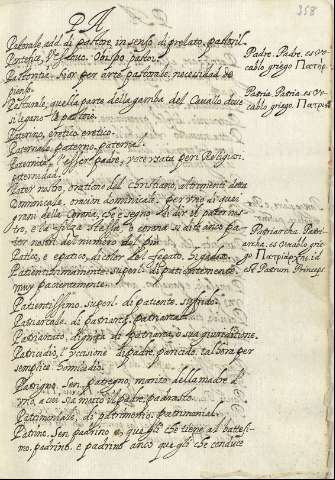 358
PA
Pastorale, add. di pastore, in senso di prelato, pastoril.
Pastoritia, sier per arte pastorale, necesidad de
Pasturale, quella parte della gamba del Cavallo doue
si legano le pastoie.
Patarino, eretico. eretico.
Paternale, paterno. paternal.
Paternità, l'esser padre, et s'usata per i Religiosi.
paternidad.
Pater nostro, oratione del christiano, altrimenti detta
Dominicale, oracion dominical. per uno di quei
grani della corona, che è segno di dir il pater nos-
tro, e la filza stessa o corona si dice anco pa-
ter nostri del numero del piu.
Patico, e epatico, di color di fegato. higadia.
Patientissimamente. superl. di patientemente.
muy pacientemente.
Patientissimo. superl. di patiente. sufrido.
Patriarcale. di patriarca. patriarcal.
Patriarcato, dignità di patriarca, e sua giuriditione.
Patricidio, l'uccisione di padre, paricidio, talora per
semplice homicidio.
Patrigno. Sen. patregno, marito della madre d'
uno, a cui sia morto il padre. padrasto.
Patrimoniale, di patrimonio. patrimonial.
Patrino. Sen. padrino, quegli che tiene al battesi-
mo. padrino. e padrino anco quegli che conduce
Padre. Padre. es vo-
cablo griego Πατήρ.
Patria. Patria. es vo-
cablo griego. Πατρία
Patriarcha. Patri-
archa. es vocablo gri-
go Πατριάρχης, id
est Patrum Princeps.